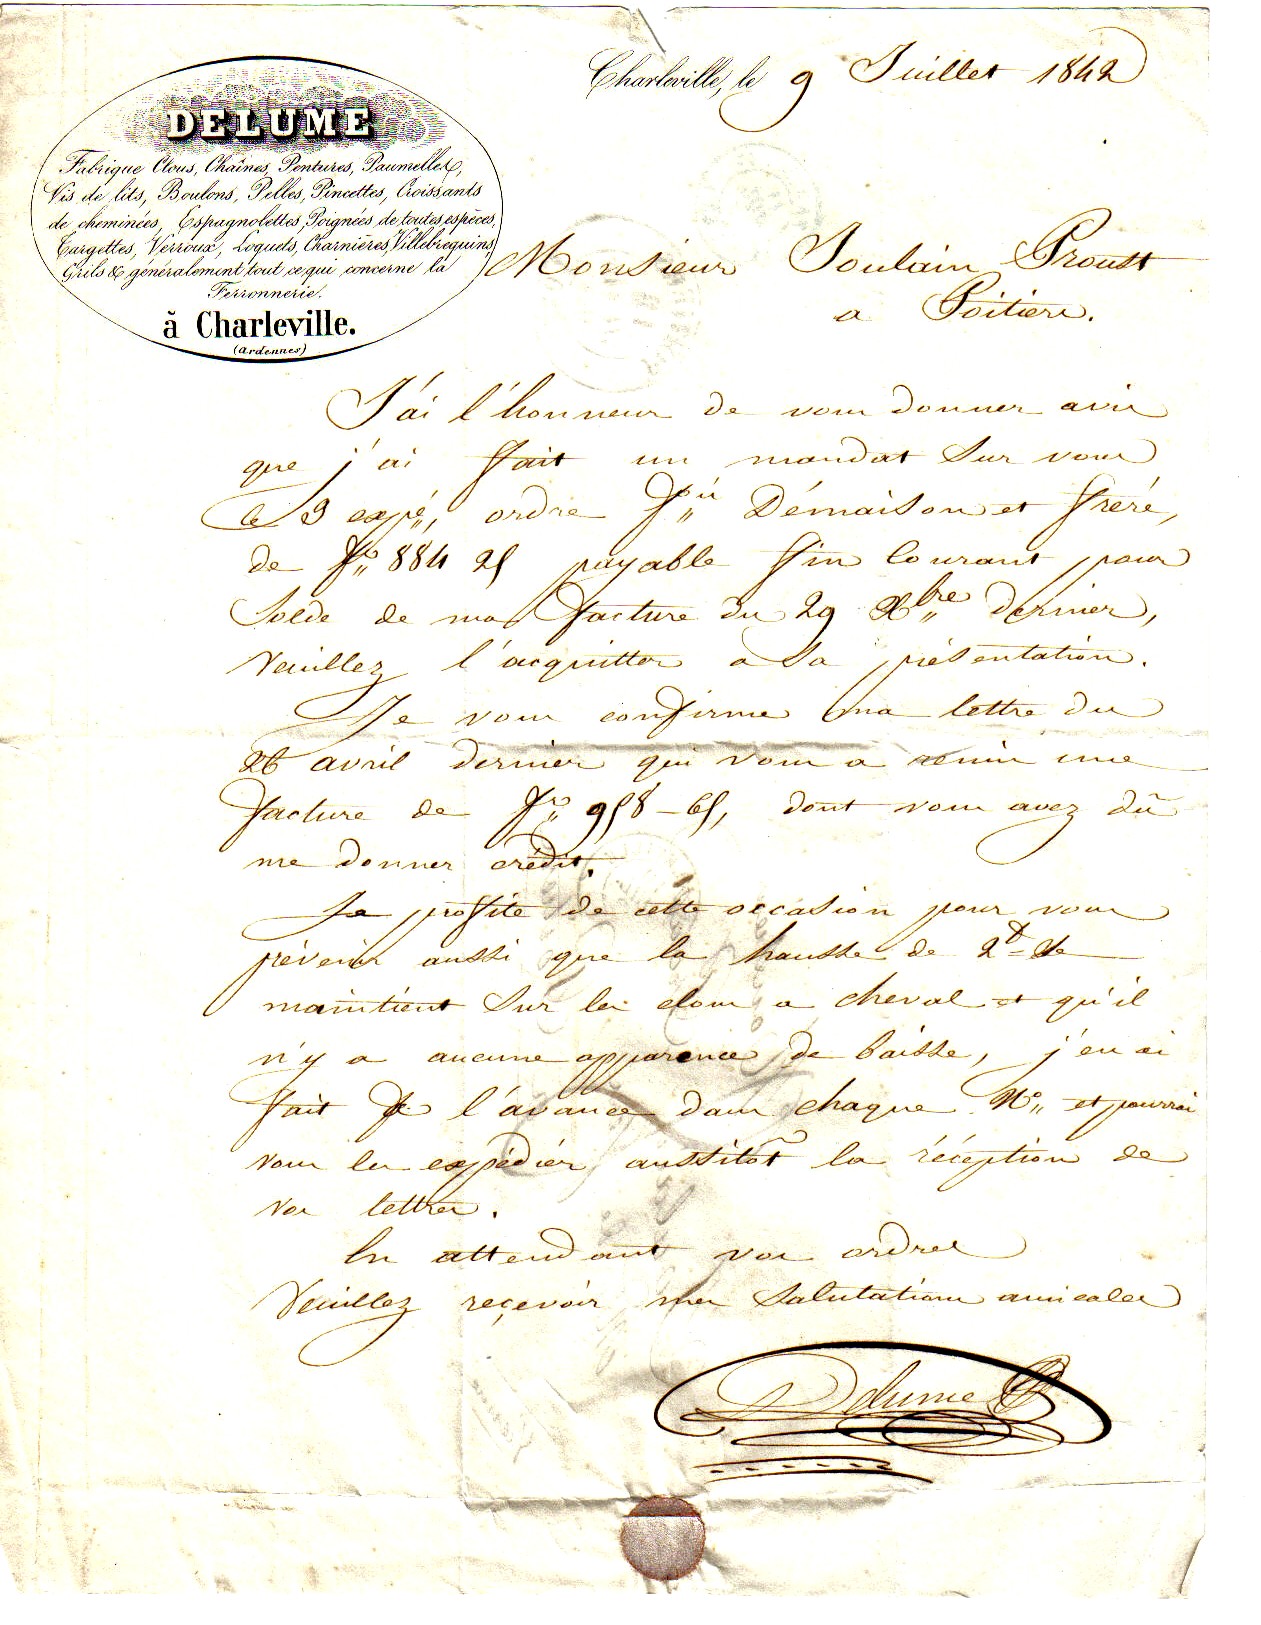 DELUME
Fabrique Clous, Chaînes, Pentures, Paumelles,
Vis de lits, Boulons, Pelles, Pincettes, Croissants
de cheminées, Espagnolettes, Poignées de toutes espèces,
Targettes, Verroux, Loquets, Charnières, Villebrequins,
Grils & généralement tout ce qui concerne la
Ferronnerie.
à Charleville.
(Ardennes)
Charleville, le 9 Juillet 1842
Monsieur Joulain Proust
a Poitiers.
J'ai l'honneur de vous donner avis
que j'ai fait un mandat sur vous
ce 9 expé, ordre Démaison et frère,
de Frs 884 25 payable fin Courant pour
Solde de ma facture du 29 Xbre dernier,
Veuillez l'acquitter a Sa présentation.
Je vous confirme ma lettre du
26 avril dernier qui vous a remis une
facture de Frs 958-65, dont vous avez dû
me donner crédit.
Je profite de cette occasion pour vous
prévenir aussi que la hausse de 2d Se
maintient Sur les clous a cheval et qu'il
n'y a aucune apparence de baisse, j'en ai
fait de l'avance dans chaque No et pourrai
vous les expédier aussitôt la réception de
vos lettres.
En attendant vos ordres
Veuillez reçevoir mes Salutations amicales
Delume